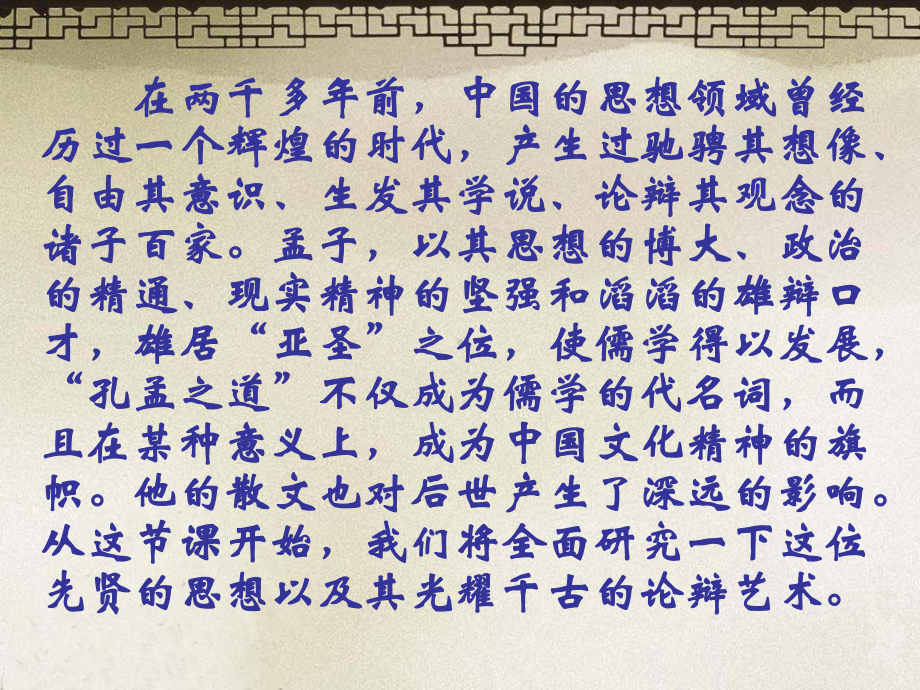 在两千多年前，中国的思想领域曾经
历过一个辉煌的时代，产生过驰骋其想像、
自由其意识、生发其学说、论辩其观念的
诸子百家。孟子，以其思想的博大、政治
的精通、现实精神的坚强和滔滔的雄辩口
才，雄居“亚圣”之位，使儒学得以发展，
“孔孟之道”不仅成为儒学的代名词，而
且在某种意义上，成为中国文化精神的旗
帜。他的散文也对后世产生了深远的影响。
从这节课开始，我们将全面研究一下这位
先贤的思想以及其光耀千古的论辩艺术。